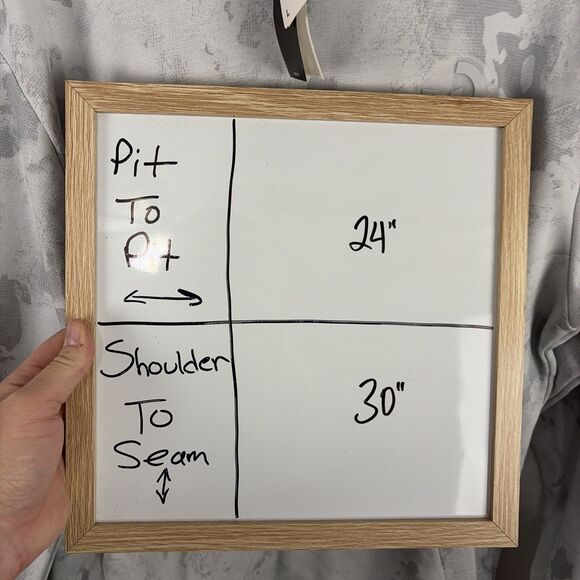 L
Pit
To
Pit
24"
Shoulder
To
Seam
30"